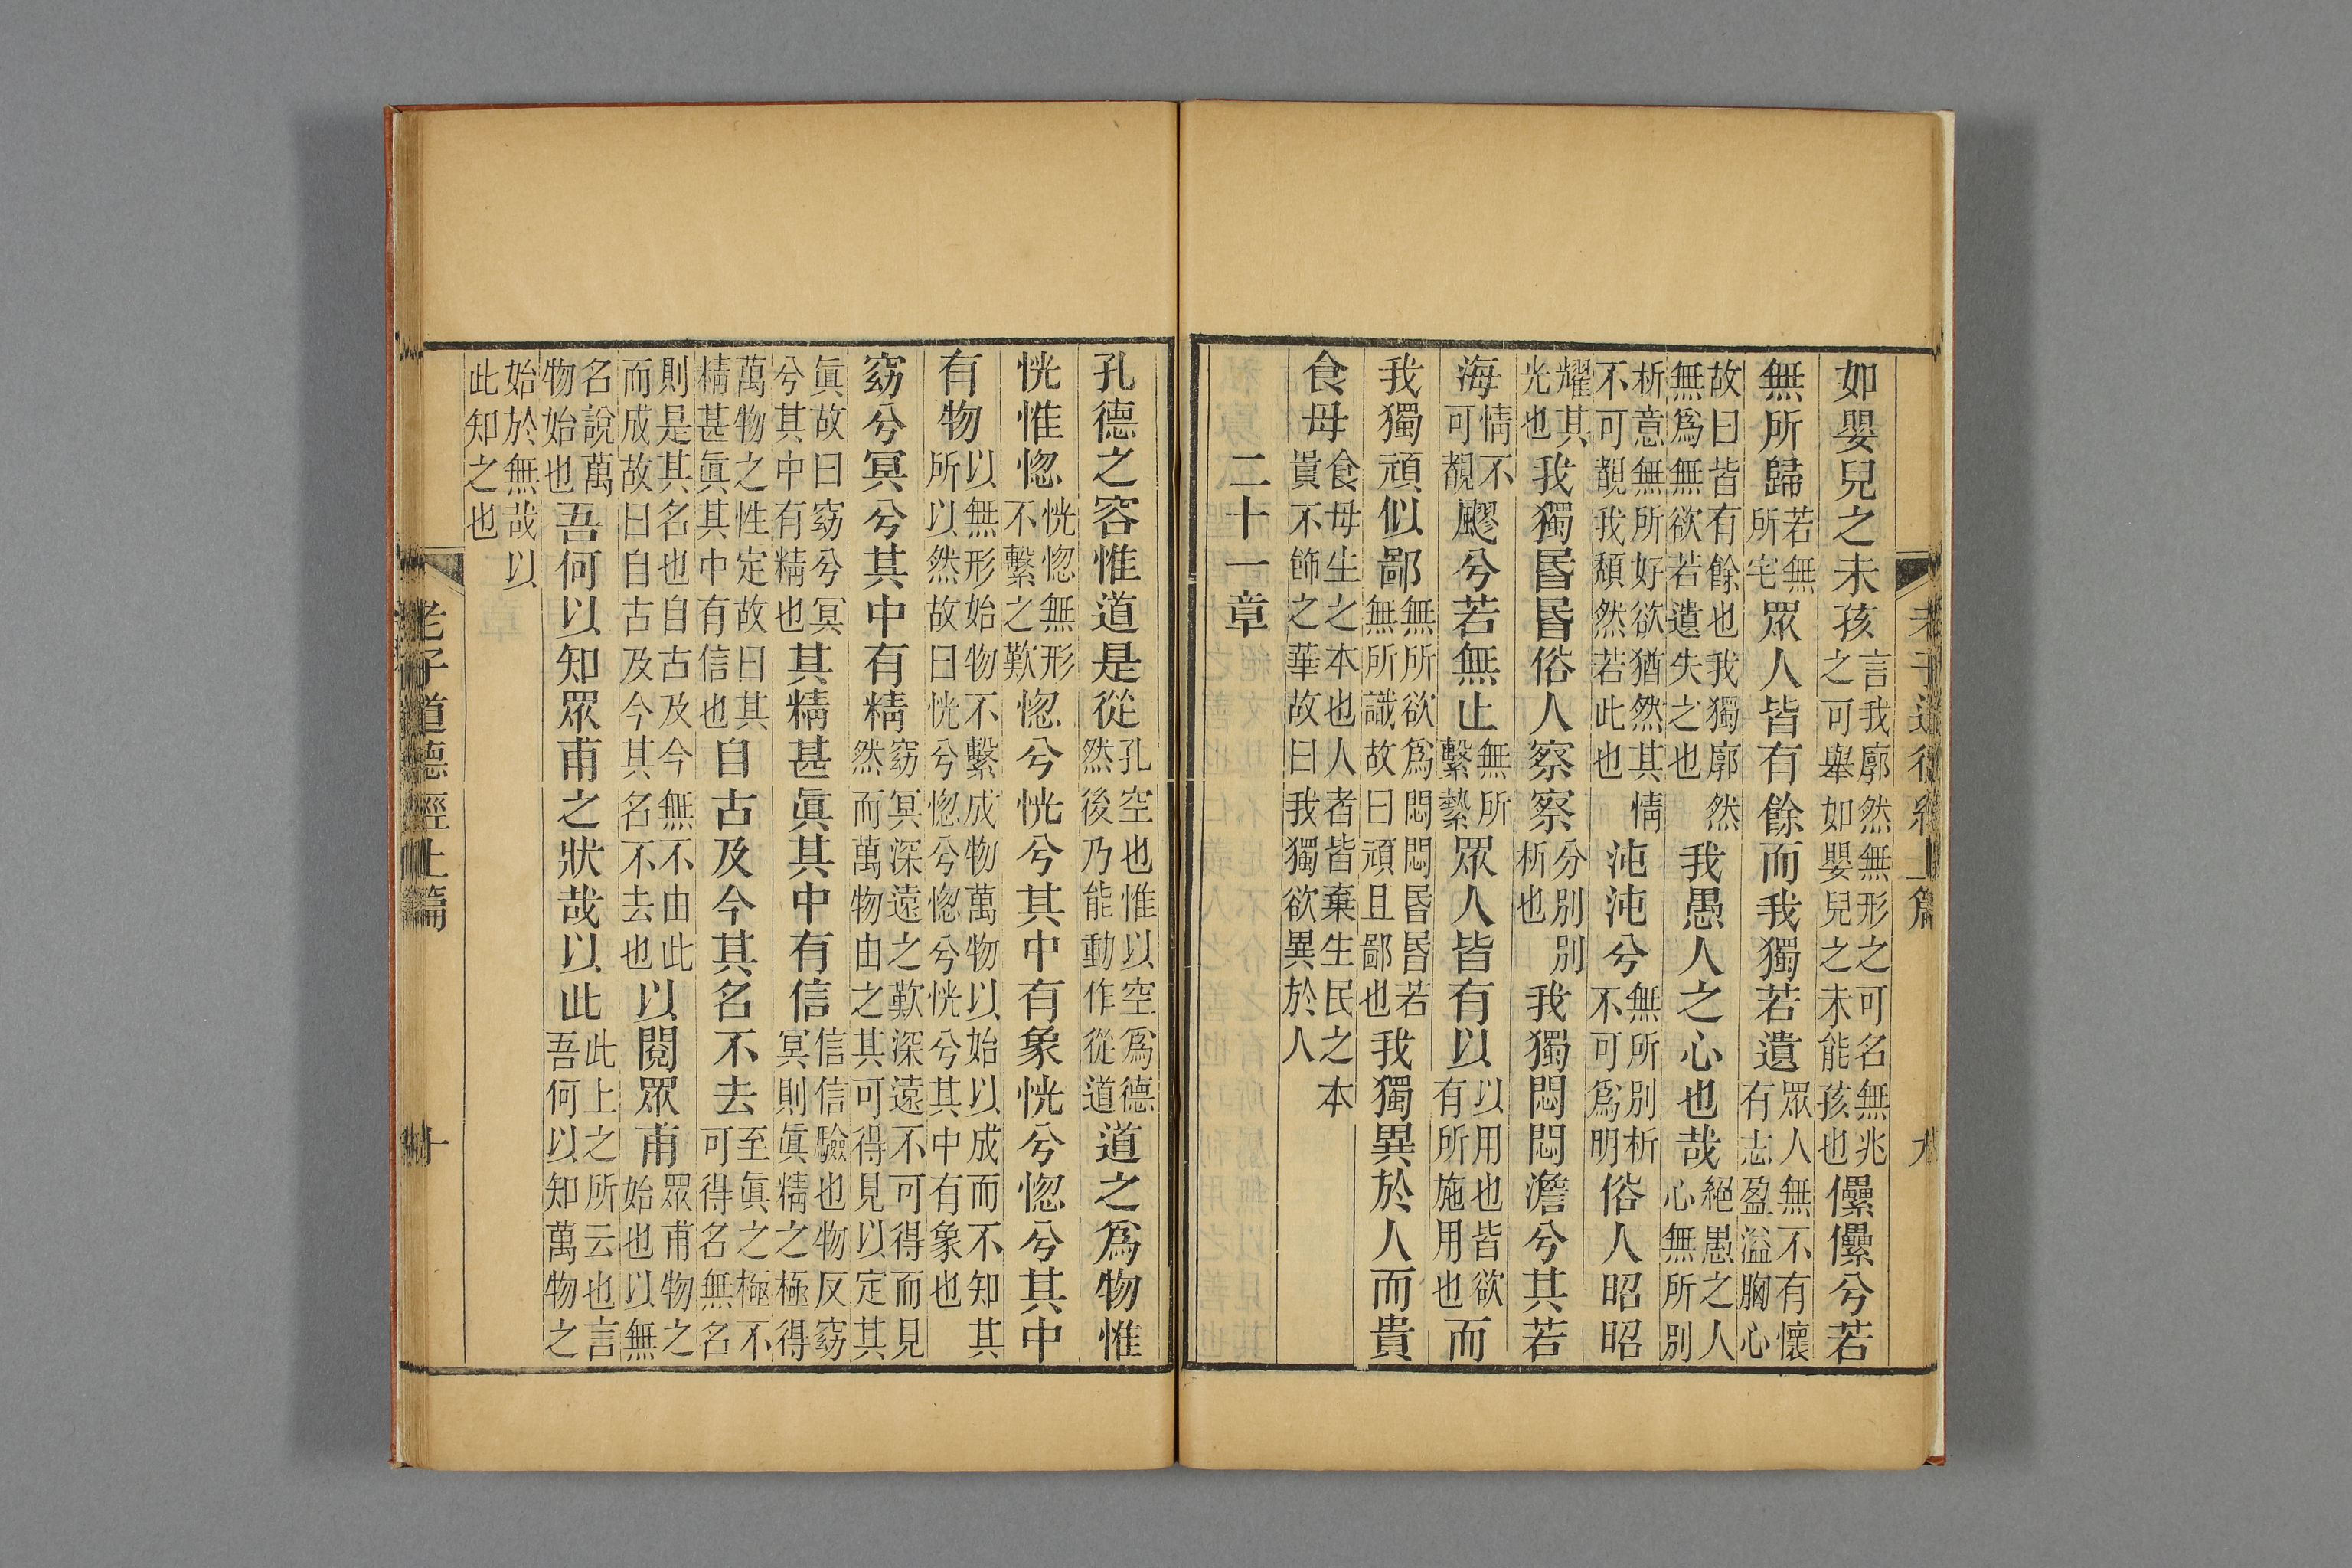 老子道德經上篇 九
如嬰兒之未孩言我廓然無形之可名無兆之可舉如嬰兒之未能孩也儽儽兮若
無所歸若無所宅眾人皆有餘而我獨若遺眾人無不有懷有志盈溢胸心
故曰皆有餘也我獨廓然無爲無欲若遺失之也我愚人之心也哉絕愚之人心無所別
析意無所好欲猶然其情不可覩我頹然若此也沌沌兮無所別析不可爲明俗人昭昭
耀其光也我獨昬昬俗人察察分別別析也我獨悶悶澹兮其若
海情不可覩飂兮若無止無所繫縶眾人皆有以以用也皆欲有所施用也而
我獨頑似鄙無所欲爲悶悶昬昬若無所識故曰頑且鄙也我獨異於人而貴
食母食母生之本也人者皆棄生民之本貴不飾之華故曰我獨欲異於人
二十一章
孔德之容惟道是從孔空也惟以空爲德然後乃能動作從道道之爲物惟
恍惟惚恍惚無形不繫之歎惚兮恍兮其中有象恍兮惚兮其中
有物以無形始物不繫成物萬物以始以成而不知其所以然故曰恍兮惚兮惚兮恍兮其中有象也
窈兮冥兮其中有精窈冥深遠之歎深遠不可得而見然而萬物由之其可得見以定其
眞故曰窈兮冥兮其中有精也其精甚眞其中有信信信驗也物反窈冥則眞精之極得
萬物之性定故曰其精甚眞其中有信也自古及今其名不去至眞之極不可得名無名
則是其名也自古及今無不由此而成故曰自古及今其名不去也以閱眾甫眾甫物之始也以無
名說萬物始也吾何以知眾甫之狀哉以此此上之所云也言吾何以知萬物之
始於無哉以此知之也
老子道德經上篇 十